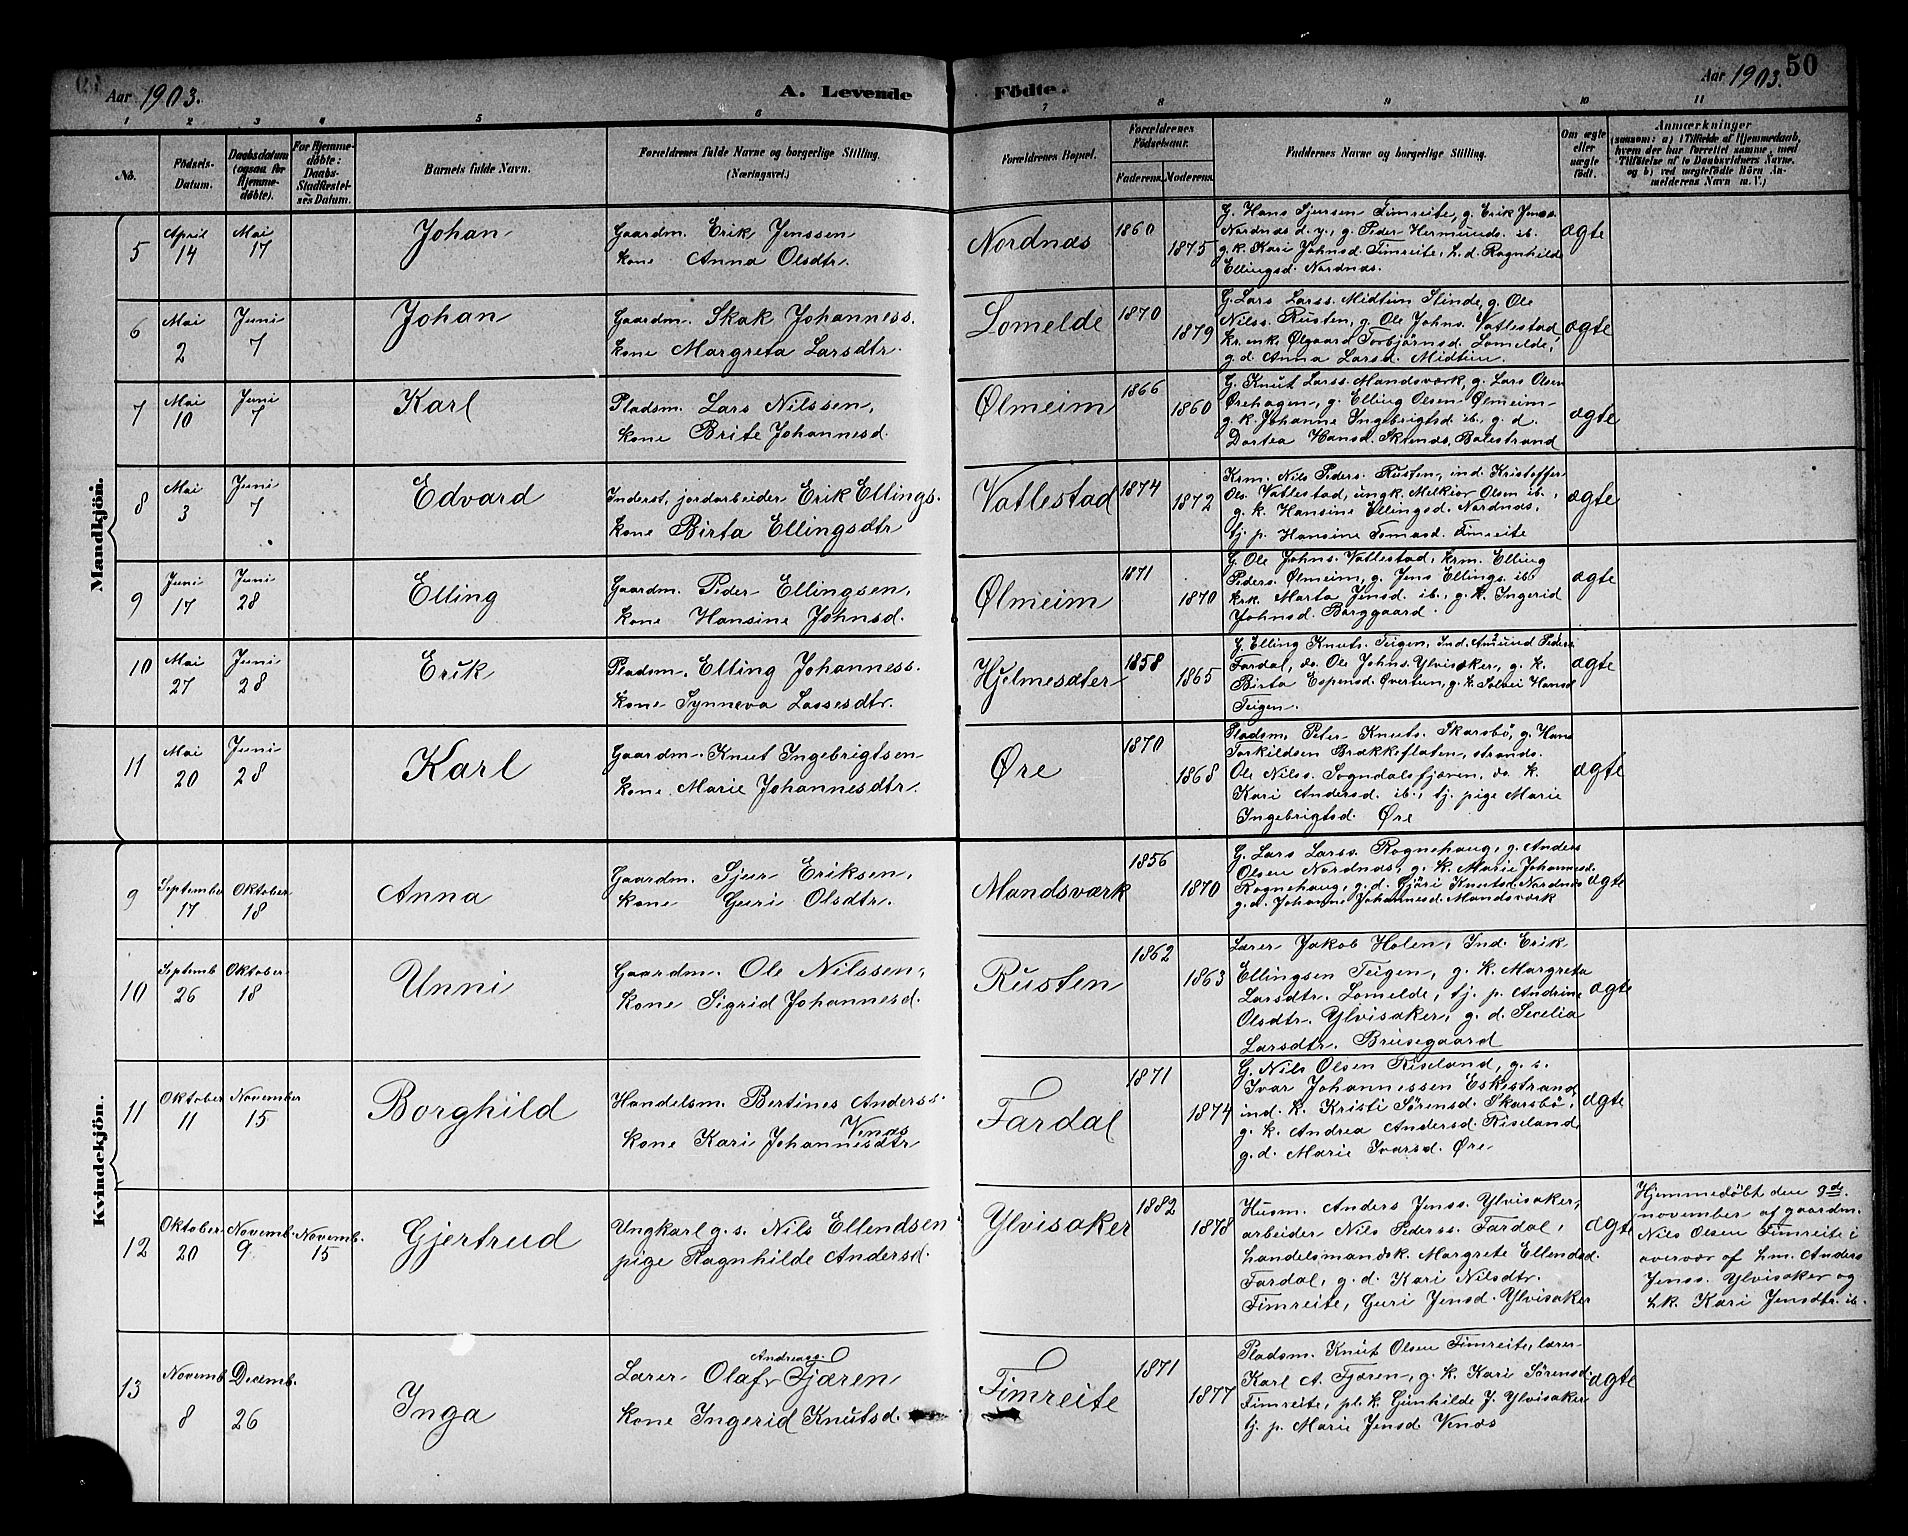 Aar 1903.
A. Levende Födte.
Aar 1903. 50
1 2 3 4 5 6 7 8 9 10 11
No.
Födsels-Datum.
Daabsdatum (ogsaa for Hjemmedöbte).
For Hjemmedöbte: Daabs-Stadfæstelses Datum.
Barnets fulde Navn.
Forældrenes fulde Navne og borgerlige Stilling.
(Næringsvei.)
Forældrenes Bopæl.
Forældrenes Födselsaar.
Faderens. Moderens.
Faddernes Navne og borgerlige Stilling.
Om ægte eller uægte født.
Anmærkninger
(saasom: a) i Tilfælde af Hjemmedaab,
hvem der har forrettet samme, med
Tilföielse af to Daabsvidners Navne,
og b) ved uægtefödte Börn An-
melderens Navn m. V.)
Mandkjön.
5 April 14 Mai 17 Johan
Gaardm. Erik Jenssen
kone Anna Olsdtr.
Nordnæs 1860 1875
G. Hans Sjursen Fimreite, g. Erik Jenss.
Nordnæs d.y., g. Peder Hermunds. ib.
g.k. Kari Johnsd. Fimreite, h.d. Ragnhilde
Ellingsd. Nordnæs.
ægte
6 Mai 2 Juni 7 Johan
Gaardm. Skak Johanness.
kone Margreta Larsdtr.
Lomelde 1870 1879
G. Lars Larss. Midtun Slinde, g. Ole
Nilss. Rusten, g. Ole Johns. Vatlestad
kr. enk. Ølgaard Torbjørnsd. Lomelde,
g.d. Anna Larsd. Midtun.
ægte
7 Mai 10 Juni 7 Karl
Pladsm. Lars Nilssen,
kone Brite Johannesd.
Ølmeim 1866 1860
G. Knut Larss. Mandsværk, g. Lars Olsen
Ørehagen, g. Elling Olsen Ølmeim
g.k. Johanne Ingebrigtsd. ib., g. d.
Dortea Hansd. Skrinds, Balestrand
ægte
8 Mai 3 Juni 7 Edvard
Inderst, jordarbeider Erik Ellings.
kone Birta Ellingsdtr
Vatlestad 1874 1872
Krm. Nils Peders. Rusten, ind. Kristoffer
Ols. Vatlestad, ungk. Melkior Olsen ib.,
g. k. Hansine Ellingsd. Nordnæs,
tj. p. Hansine Tomasd. Fimreite
ægte
9 Juni 17 Juni 28 Elling
Gaardm. Peder Ellingsen,
kone Hansine Johnsd.
Ølmeim 1871 1870
G. Ole Johns. Vatlestad, krm. Elling
Peders. Ølmeim, g. Jens Ellings. ib.
krk. Marta Jensd. ib., g. k. Ingerid
Johnsd. Borggaard.
ægte
10 Mai 27 Juni 28 Erik
Pladsm. Elling Johanness.
kone Synneva Lassesdtr.
Hjelmesæter 1858 1865
G. Elling Knuts. Teigen, Ind. Amund Peders.
Fardal, do. Ole Johns. Ylvisaker, g. k.
Birta Espensd. Øvertun, g. k. Solvei Hansd
Teigen.
ægte
11 Mai 20 Juni 28 Karl
Gaardm. Knut Ingebrigtsen
kone Marie Johannesdtr.
Øre 1870 1868
Pladsm. Peter Knuts. Skarsbö, g. Hans
Torkildsen Brækkeflaten, strands.
Ole Nilss. Sogndalsfjæren, do. k.
Kari Andersd. ib., tj. pige Marie
Ingebrigtsd. Øre
ægte
Kvindekjön.
9 September 17 Oktober 18 Anna
Gaardm. Sjur Eriksen,
kone Guri Olsdtr.
Mandsværk 1856 1870
G. Lars Larss. Rognehaug, g. Anders
Olsen Nordnæs, g. k. Marie Johannesd.
Rognehaug, g. d. Gjöri Knutsd. Nordnæs
g. d. Johanne Johannesd. Mandsværk
ægte
10 Septemb 26 Oktober 18 Unni
Gaardm. Ole Nilssen,
kone Sigrid Johannesd.
Rusten 1862 1863
Lærer Jakob Holen, Ind. Erik
Ellingsen Teigen, g. k. Margreta
Larsdtr. Lomelde, tj. p. Andrine
Olsdtr. Ylvisaker, g. d. Secelia
Larsdtr. Brusegaard
ægte
11 Oktober 11 November 15 Borghild
Handelsm. Bertines Anderss.
Venæs
kone Kari Johannesdtr
Fardal 1871 1874
G. Nils Olsen Riseland, g. s.
Ivar Johannessen Eskestrand,
ind. k. Kristi Sörensd. Skarsbö,
g. k. Andrea Andersd. Riseland,
g. d. Marie Ivarsd. Øre
ægte
12 Oktober 20 Novemb. 9 Novemb. 15 Gjertrud
Ungkarl g. s. Nils Ellendsen
pige Ragnhilde Andersd.
Ylvisaker 1882 1878
Husm. Anders Jenss. Ylvisaker,
arbeider Nils Pederss. Fardal,
handelsmandsk. Margrete Ellendsd.
Fardal, g. d. Kari Nilsdtr.
Fimreite, Guri Jensd. Ylvisaker
ægte
Hjemmedöbt den 9de
november af gaardm.
Nils Olsen Fimreite i
overvær af hm. Anders
Jenss. Ylvisaker og
hk. Kari Jensdtr. ib.
13 Novemb 8 Decemb. 26 Inga
Andreass.
Lærer Olaf Fjæren
kone Ingerid Knutsd.
Fimreite 1871 1877
Pladsm. Knut Olsen Fimreite, lærer
Karl A. Fjæren, g. k. Kari Sörensd.
Fimreite, pl. k. Gunhilde J. Ylvisaker
tj. p. Marie Jensd Venæs
ægte